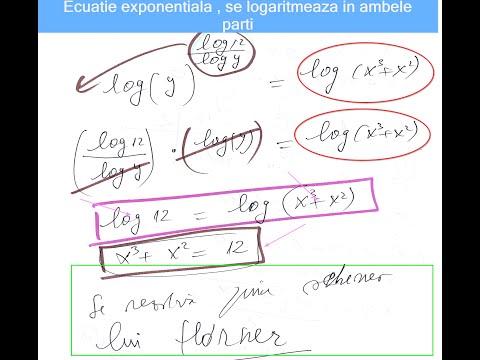 Ecuatie exponentiala , se logaritmeaza in ambele
parti
log(y)^(log 12 / log y) = log (x³+x²)
(log 12 / log y) · (log(y)) = log(x³+x²)
log 12 = log (x³+x²)
x³+ x² = 12
Se rezolvă prin
lui Horner